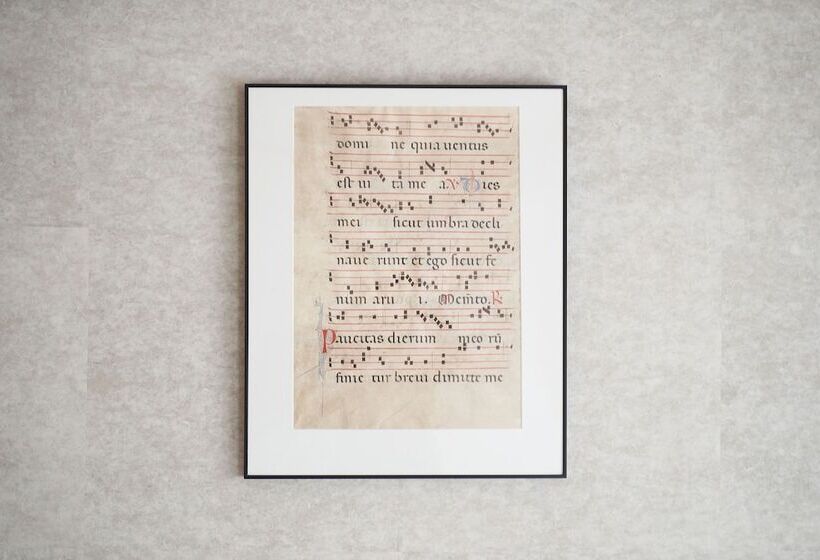 domi ne quia uentus
est ui ta me a. V. Dies
mei sicut umbra decli
naue runt et ego sicut fe
num aru i. Memto. R.
Paucitas dierum meo rū
finie tur breui dimitte me